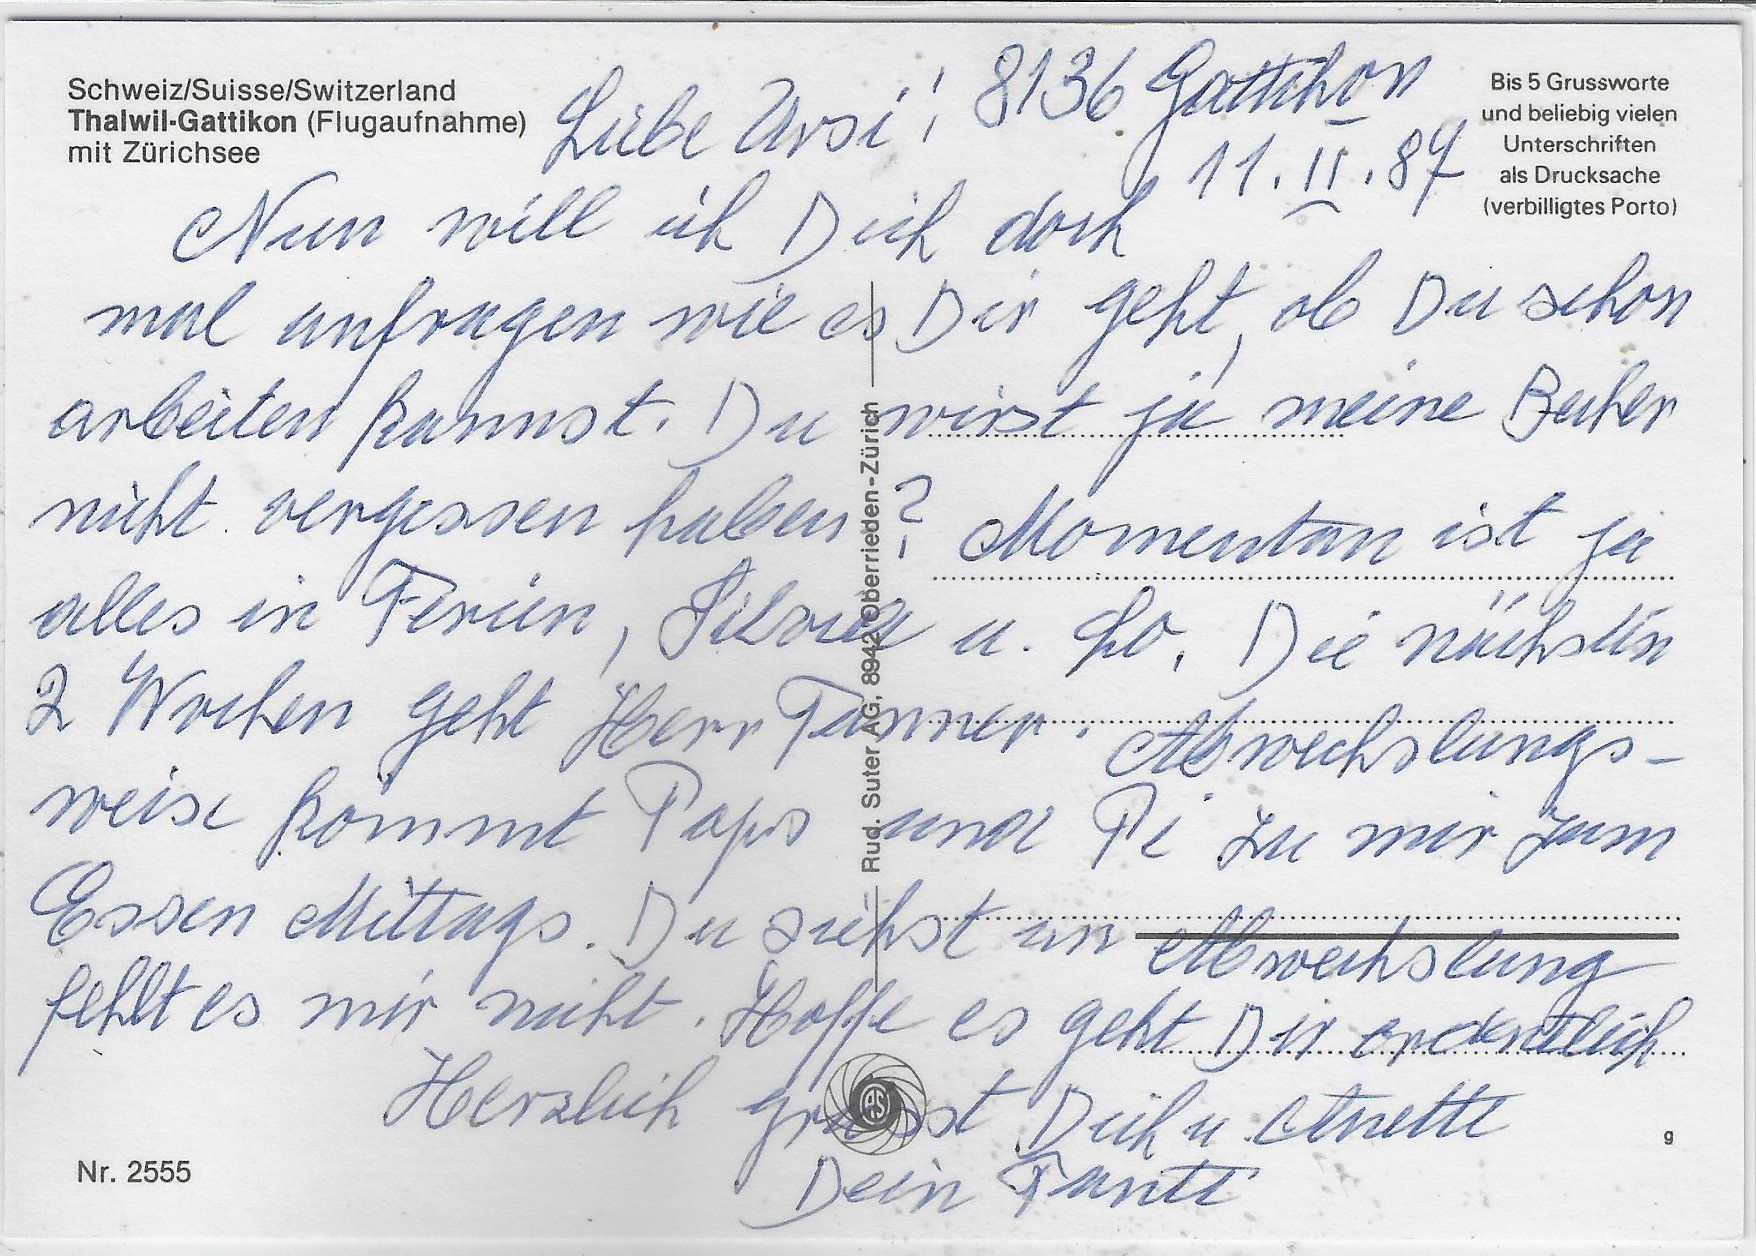 Schweiz/Suisse/Switzerland
Thalwil-Gattikon (Flugaufnahme)
mit Zürichsee
Bis 5 Grussworte
und beliebig vielen
Unterschriften
als Drucksache
(verbilligtes Porto)
8136 Gattikon
11. II. 87
Liebe Ursi!
Nun will ich Dich doch
mal anfragen wie es Dir geht, ob Du schon
arbeiten kannst. Du wirst ja meine Becher
nicht vergessen haben? Momentan ist ja
alles in Ferien, Silvia u. Lo. Die nächsten
2 Wochen geht Herr Tanner. Abwechslungs-
weise kommt Paps und Pi zu mir zum
Essen Mittags. Du siehst an Abwechslung
fehlt es mir nicht. Hoffe es geht Dir ordentlich
Herzlich grüsst Dich u Anette
Dein Tanti
Rud. Suter AG, 8942 Oberrieden-Zürich
RS
Nr. 2555
g